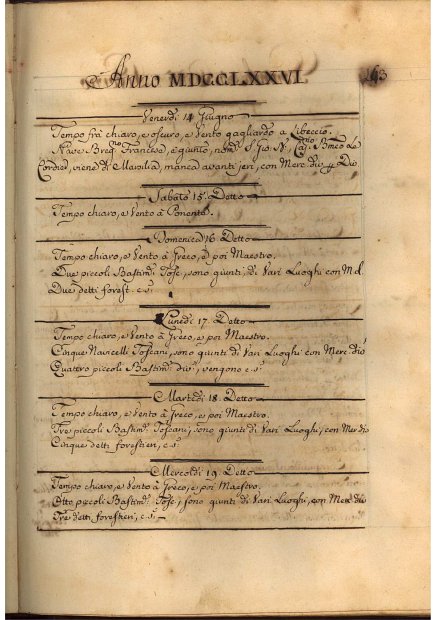 Anno MDCCLXXVI. 163
Venerdì 14 Giugno
Tempo frà chiaro, e oscuro, e Vento gagliardo a Libeccio.
Nave Francese, è giunto, S. Gio.
viene di Marsilia, manca avanti jeri, con Merc. div.
Sabato 15. Detto
Tempo chiaro, e Vento à Ponente.
Domenica 16. Detto
Tempo chiaro, e Vento à Greco, e poi Maestro.
Due piccoli Bastim. Tosc., sono giunti, di Vari Luoghi con M. d.
Due detti forest. e. s.
Lunedì 17. Detto
Tempo chiaro, e Vento à Greco, e poi Maestro.
Cinque Navicelli Toscani, sono giunti di Vari Luoghi con Merc. div.
Quattro piccoli Bastim. div., vengono e. s.
Martedì 18. Detto
Tempo chiaro, e Vento à Greco, e poi Maestro.
Tre piccoli Bastim. Toscani, sono giunti di Vari Luoghi, con Mer. div.
Cinque detti forestieri, e. s.
Mercoldì 19. Detto
Tempo chiaro, e Vento à Greco, e poi Maestro.
Otto piccoli Bastim. Tosc., sono giunti di Vari Luoghi, con Merc. div.
Tre detti forestieri, e. s.